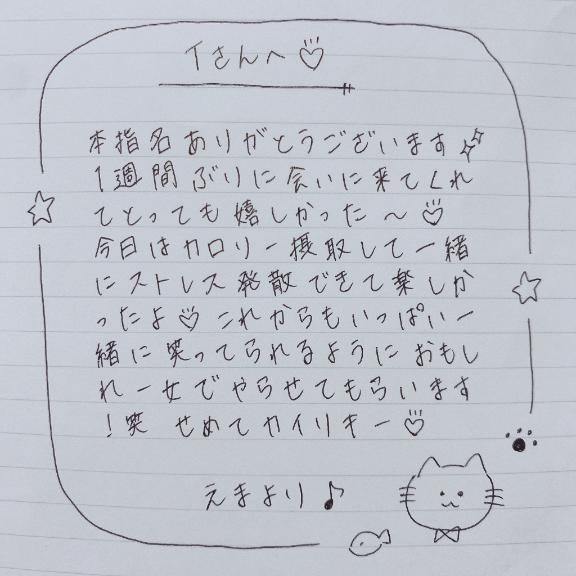 Tさんへ♡
本指名ありがとうございます
1週間ぶりに会いに来てくれ
てとっても嬉しかった〜♡
今日はカロリー摂取して一緒
にストレス発散できて楽しか
ったよ♡これからもいっぱい一
緒に笑ってられるようにおもし
れー女でやらせてもらいます
!笑 せめてカイリキー♡
えまより♪